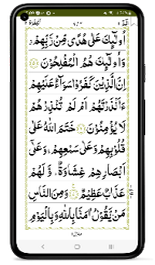 أُولَٰئِكَ عَلَىٰ هُدًى مِّن رَّبِّهِمْ
وَأُولَٰئِكَ هُمُ الْمُفْلِحُونَ
إِنَّ الَّذِينَ كَفَرُوا سَوَاءٌ عَلَيْهِمْ
ءَأَنذَرْتَهُمْ أَمْ لَمْ تُنذِرْهُمْ
لَا يُؤْمِنُونَ خَتَمَ اللَّهُ عَلَىٰ
قُلُوبِهِمْ وَعَلَىٰ سَمْعِهِمْ وَعَلَىٰ
أَبْصَارِهِمْ غِشَاوَةٌ وَلَهُمْ
عَذَابٌ عَظِيمٌ وَمِنَ النَّاسِ
مَن يَقُولُ آمَنَّا بِاللَّهِ وَبِالْيَوْمِ